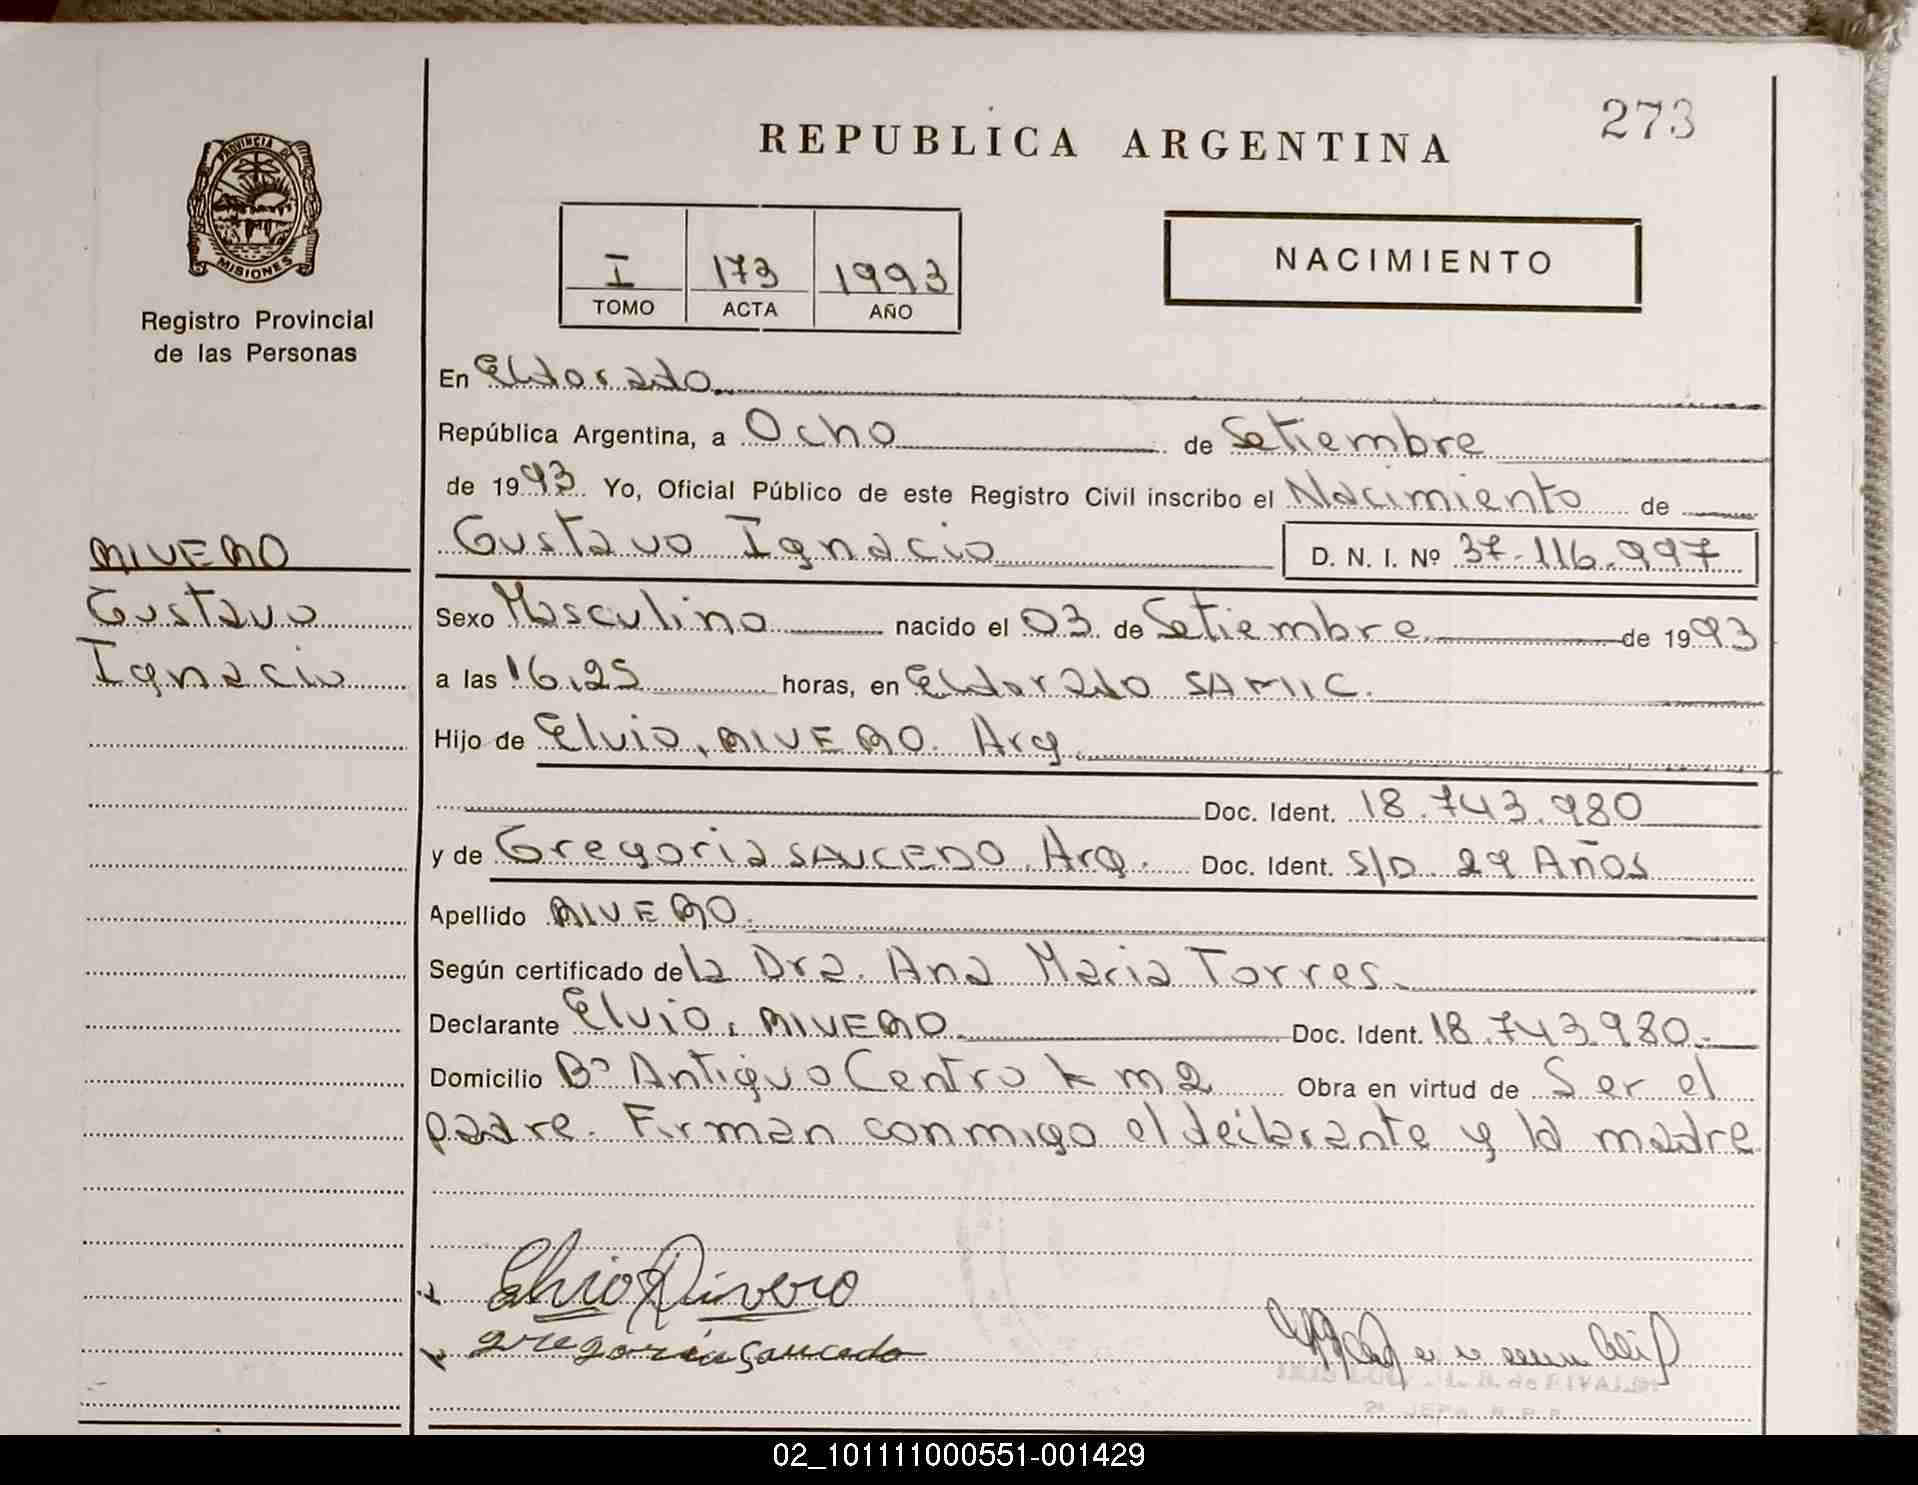 273
REPUBLICA ARGENTINA
PROVINCIA DE
MISIONES
Registro Provincial
de las Personas
I 173 1993
TOMO ACTA AÑO
NACIMIENTO
En Eldorado
República Argentina, a Ocho de Setiembre
de 1993 Yo, Oficial Público de este Registro Civil inscribo el Nacimiento de
Gustavo Ignacio D. N. I. Nº 37.116.997
RIVERO
Gustavo
Ignacio
Sexo Masculino nacido el 03 de Setiembre de 1993
a las 16,25 horas, en Eldorado SAMIC.
Hijo de Elvio, RIVERO. Arg.
Doc. Ident. 18.743.980
y de Gregoria SAUCEDO. Arg. Doc. Ident. S/D. 29 Años
Apellido RIVERO.
Según certificado de la Dra. Ana Maria Torres.
Declarante Elvio, RIVERO Doc. Ident. 18.743.980.-
Domicilio Bº Antiguo Centro km 2 Obra en virtud de Ser el
padre. Firman conmigo el declarante y la madre
Elvio Rivero
gregoria Saucedo
02_101111000551-001429